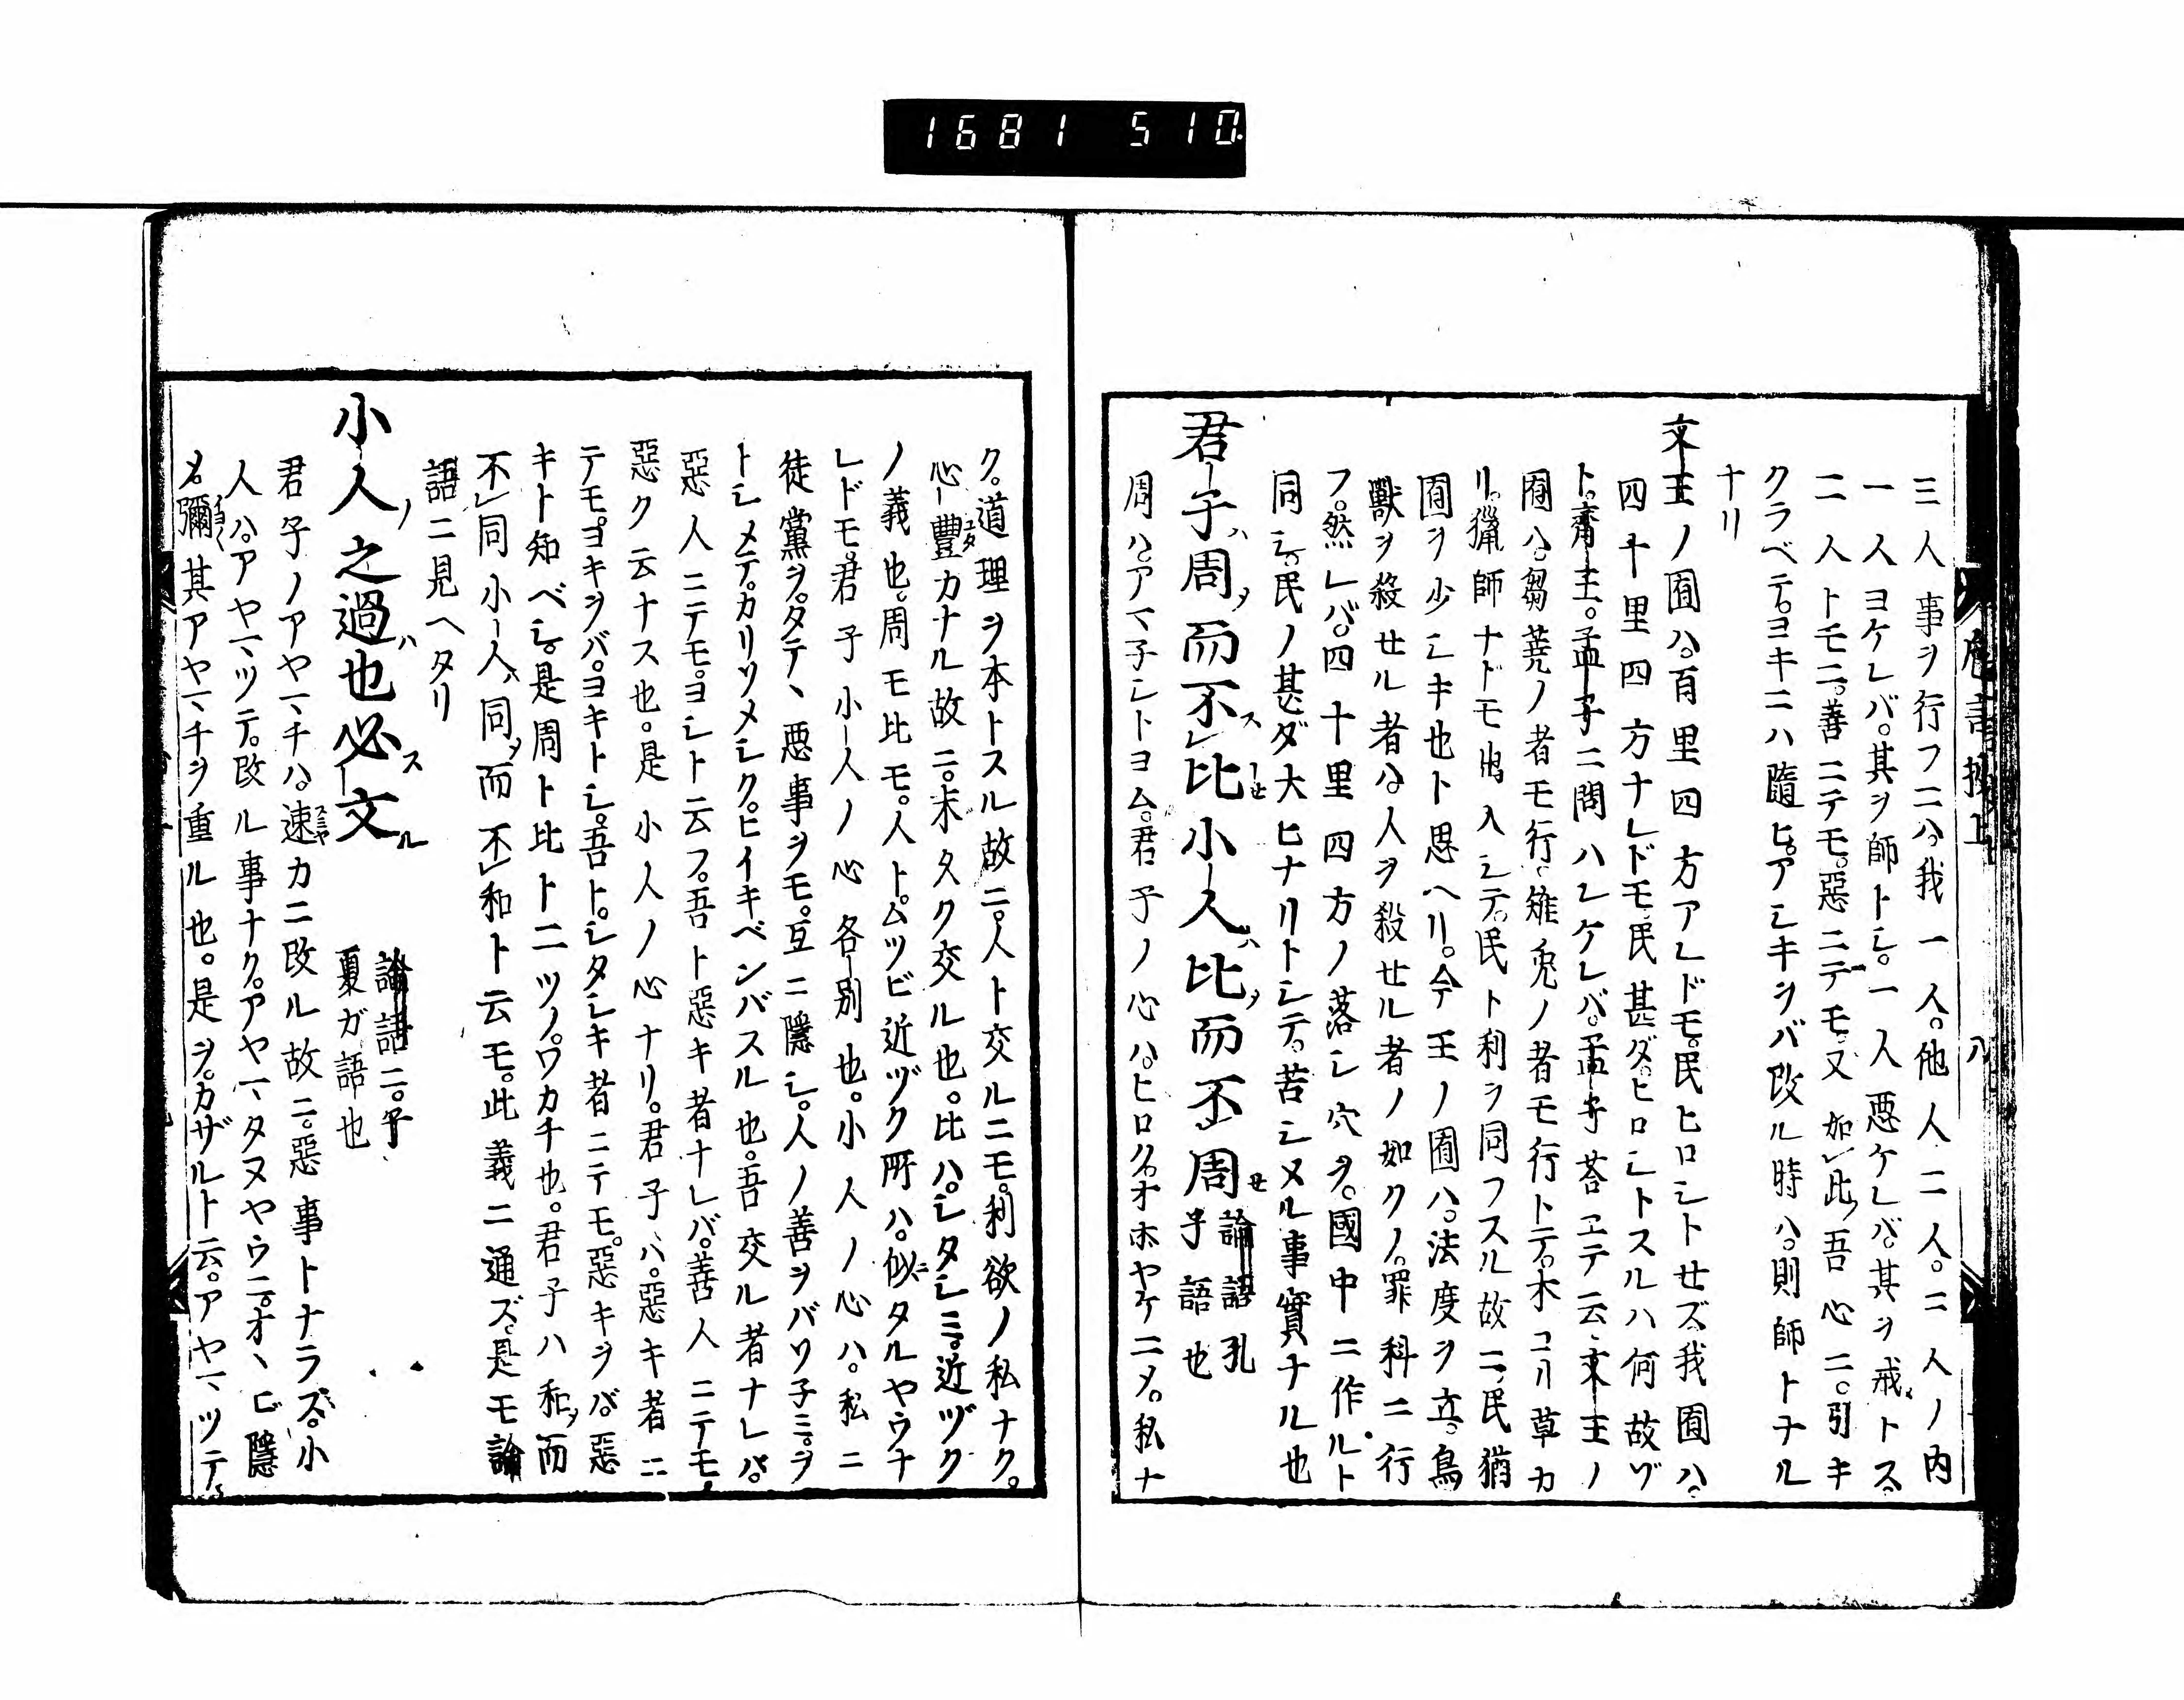 1681 510.
三人事ヲ行フニハ。我一人。他人二人。二人ノ内
一人ヨケレバ。其ヲ師トシ。一人悪ケレバ。其ヲ戒トス。
二人トモニ。善ニテモ。惡ニテモ。又如此。吾心ニ。引キ
クラベテ。ヨキニハ隨ヒ。アシキヲバ改ル時ハ。則師トナル
ナリ
文王ノ囿ハ。百里四方アレドモ。民ヒロシトセズ。我囿ハ。
四十里四方ナレドモ。民甚ダ。ヒロシトスルハ何故ゾ
ト。齊王。孟子ニ問ハレケレバ。孟子荅ヱテ云。文王ノ
囿ハ。芻蕘ノ者モ行。雉兎ノ者モ行トテ。木コリ草カ
リ。獵師ナドモ出入シテ。民ト利ヲ同フスル故ニ。民猶
囿ヲ少シキ也ト思ヘリ。今王ノ囿ハ。法度ヲ立。鳥
獸ヲ殺セル者ハ。人ヲ殺セル者ノ如クノ。罪科ニ行
フ。然レバ。四十里四方ノ落シ穴ヲ。國中ニ作ルト
同シ。民ノ甚ダ大ヒナリトシテ。苦シメル事實ナル也
君子ハ周ヲ而不比セ小人ハ比ヲ而不周セ 論語孔子語也
周ハ。アマネシトヨム。君子ノ心ハ。ヒロク。オホヤケニメ。私ナ
ク。道理ヲ本トスル故ニ。人ト交ルニモ。利欲ノ私ナク。
心豐カナル故ニ。末タク交ル也。比ハ。シタシミ。近ヅク
ノ義也。周モ比モ。人ト。ムツビ近ヅク所ハ。似タルヤウナ
レドモ。君子小人ノ心各別也。小人ノ心ハ。私ニ
徒黨ヲ。タテヽ悪事ヲモ。互ニ隱シ。人ノ善ヲバソネミ。ヲ
トシメテ。カリソメシク。ヒイキベンバスル也。吾交ル者ナレバ。
惡人ニテモ。ヨシト云フ。吾ト惡キ者ナレバ。善人ニテモ。
惡ク云ナス也。是小人ノ心ナリ。君子ハ。惡キ者ニ
テモ。ヨキヲバ。ヨキトシ。吾ト。シタシキ者ニテモ。惡キヲバ。惡
キト知ベシ。是周ト比ト二ツノ。ワカチ也。君子ハ和ヲ而
不同小人ハ同ヲ而不和ト云モ。此義ニ通ズ。是モ論
語ニ見ヘタリ
小人ノ之過ハ也必スル文 論語ニ。子夏ガ語也
君子ノアヤマチハ。速カニ改ル故ニ。惡事トナラズ。小
人ハ。アヤマツテ。改ル事ナク。アヤマタヌヤウニ。オヽヒ隱
メ。彌其アヤマチヲ重ル也。是ヲ。カザルト云。アヤマツテ。